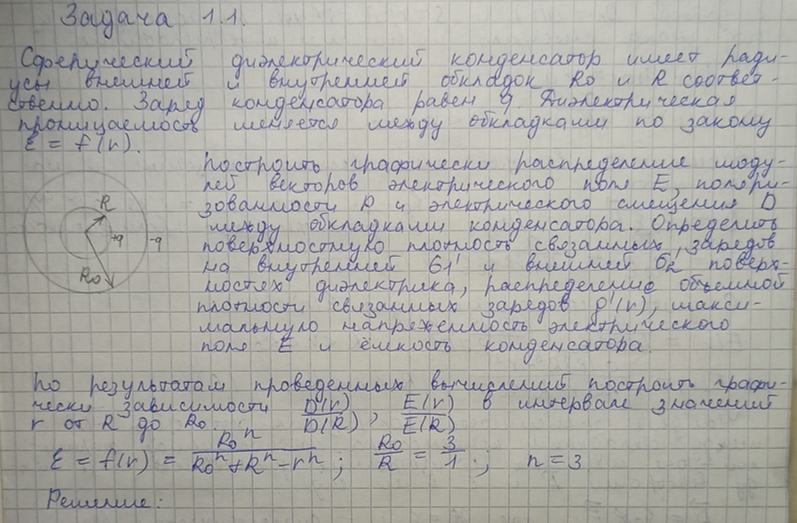 Задача 1.1.
Сферический диэлектрический конденсатор имеет ради-
усы внешней и внутренней обкладок Ro и R соответ-
ственно. Заряд конденсатора равен q. Диэлектрическая
проницаемость меняется между обкладками по закону
ε = f(r).
Построить графически распределение моду-
лей векторов электрического поля E, поляри-
зованности P и электрического смещения D
между обкладками конденсатора. Определить
поверхностную плотность связанных зарядов
на внутренней σ1' и внешней σ2' поверх-
ностях диэлектрика, распределение объемной
плотности связанных зарядов ρ'(r), макси-
мальную напряженность электрического
поля E и ёмкость конденсатора.
R
+q
-q
Ro
По результатам проведенных вычислений построить графи-
чески зависимости D(r)/D(R), E(r)/E(R) в интервале значений
r от R до Ro.
ε = f(r) = Ro^n / (Ro^n + R^n - r^n); Ro/R = 3/1; n = 3
Решение: